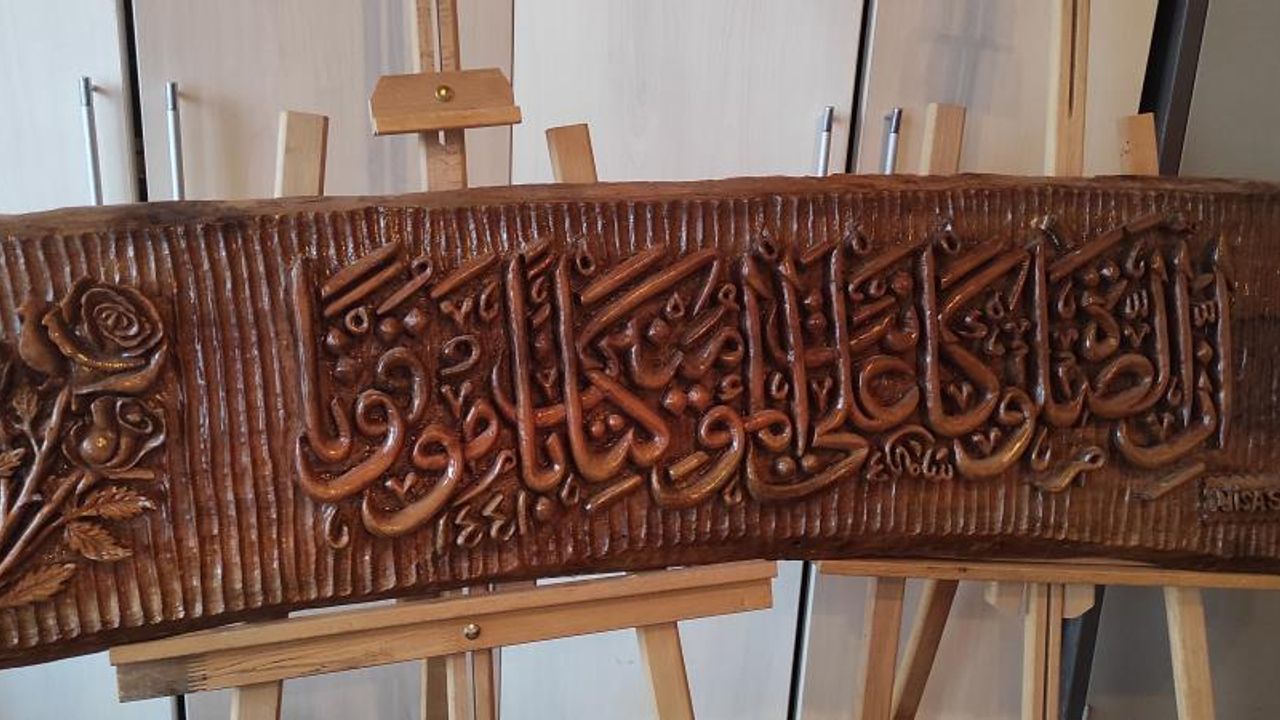 إِنَّ الصَّلَاةَ كَانَتْ عَلَى الْمُؤْمِنِينَ كِتَابًا مَوْقُوتًا
١٤٤١